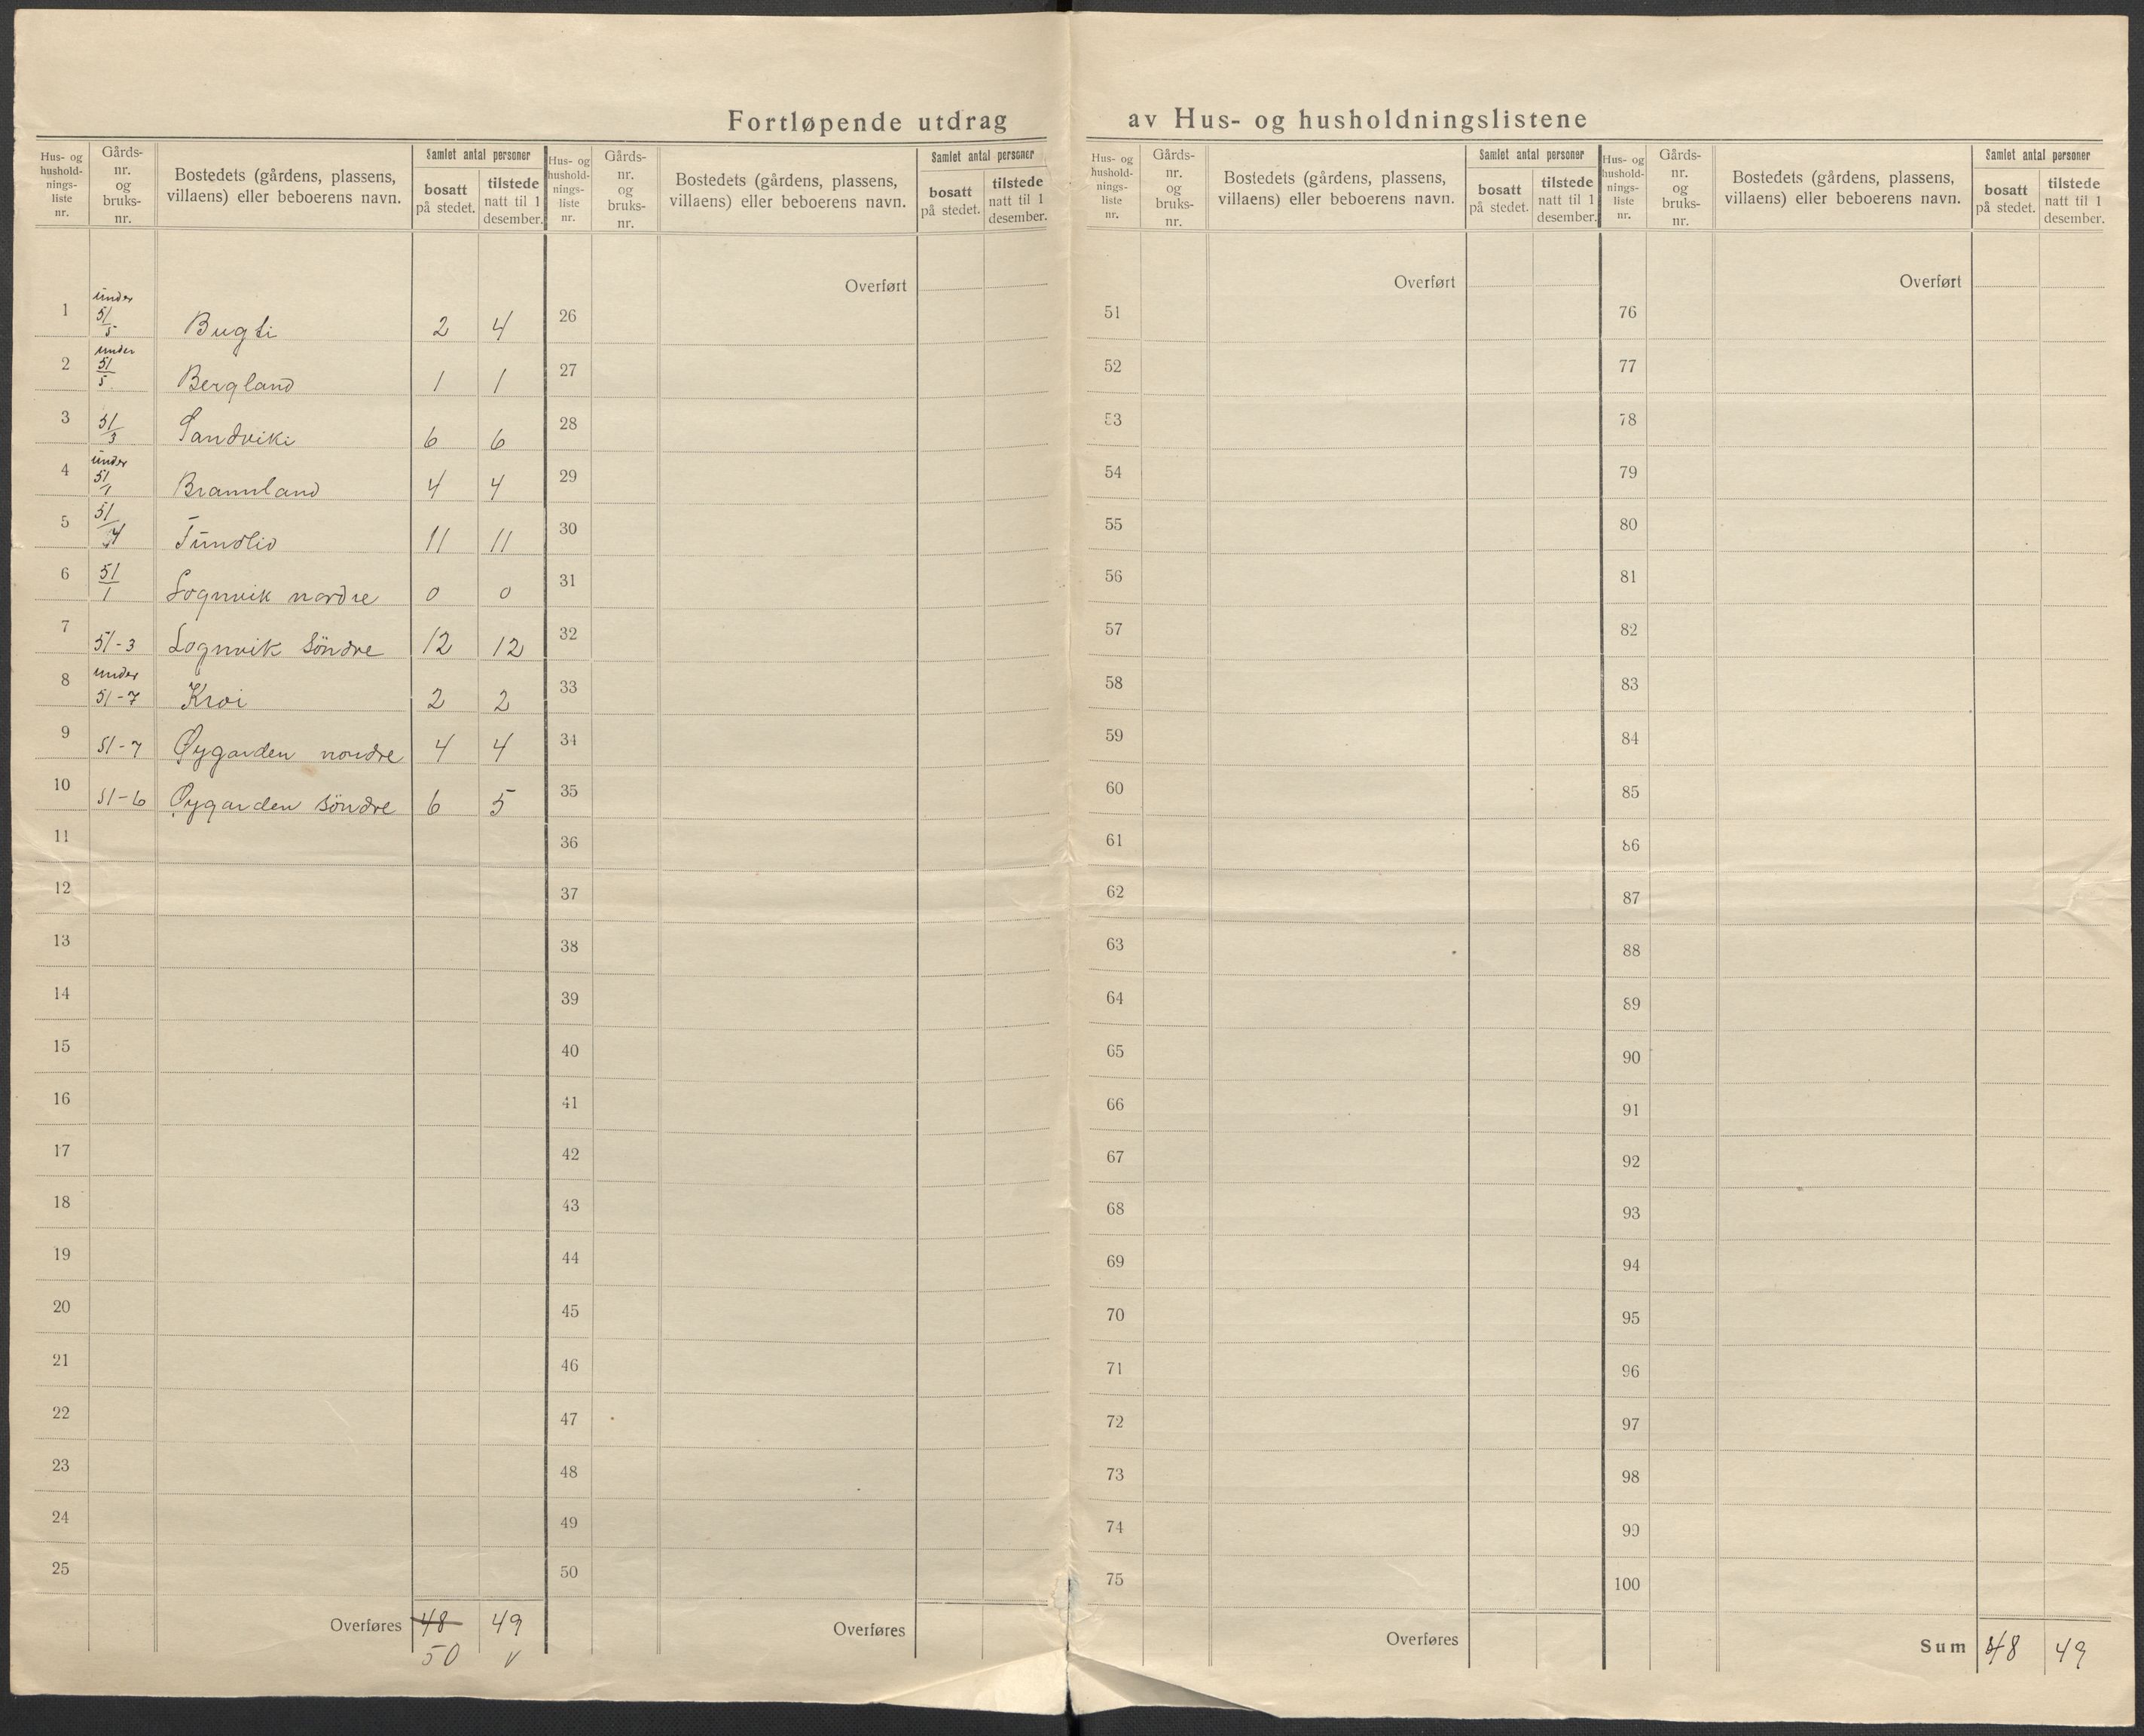 Fortløpende utdrag av Hus- og husholdningslistene
Hus- og hushold-nings-liste nr. Gårds-nr. og bruks-nr. Bostedets (gårdens, plassens, villaens) eller beboerens navn. Samlet antal personer bosatt på stedet. tilstede natt til 1 desember.
1 under 51/5 Bugti 2 4
2 under 51/5 Bergland 1 1
3 51/3 Sandviki 6 6
4 under 51/1 Brannland 4 4
5 51/4 Tundlid 11 11
6 51/1 Lognvik nordre 0 0
7 51-3 Lognvik söndre 12 12
8 under 51-7 Kroi 2 2
9 51-7 Øygarden nordre 4 4
10 51-6 Øygarden söndre 6 5
11
12
13
14
15
16
17
18
19
20
21
22
23
24
25
Overføres 48 49
50 v
Hus- og hushold-nings-liste nr. Gårds-nr. og bruks-nr. Bostedets (gårdens, plassens, villaens) eller beboerens navn. Samlet antal personer bosatt på stedet. tilstede natt til 1 desember.
Overført
26
27
28
29
30
31
32
33
34
35
36
37
38
39
40
41
42
43
44
45
46
47
48
49
50
Overføres
Hus- og hushold-nings-liste nr. Gårds-nr. og bruks-nr. Bostedets (gårdens, plassens, villaens) eller beboerens navn. Samlet antal personer bosatt på stedet. tilstede natt til 1 desember.
Overført
51
52
53
54
55
56
57
58
59
60
61
62
63
64
65
66
67
68
69
70
71
72
73
74
75
Overføres
Hus- og hushold-nings-liste nr. Gårds-nr. og bruks-nr. Bostedets (gårdens, plassens, villaens) eller beboerens navn. Samlet antal personer bosatt på stedet. tilstede natt til 1 desember.
Overført
76
77
78
79
80
81
82
83
84
85
86
87
88
89
90
91
92
93
94
95
96
97
98
99
100
Sum 48 49